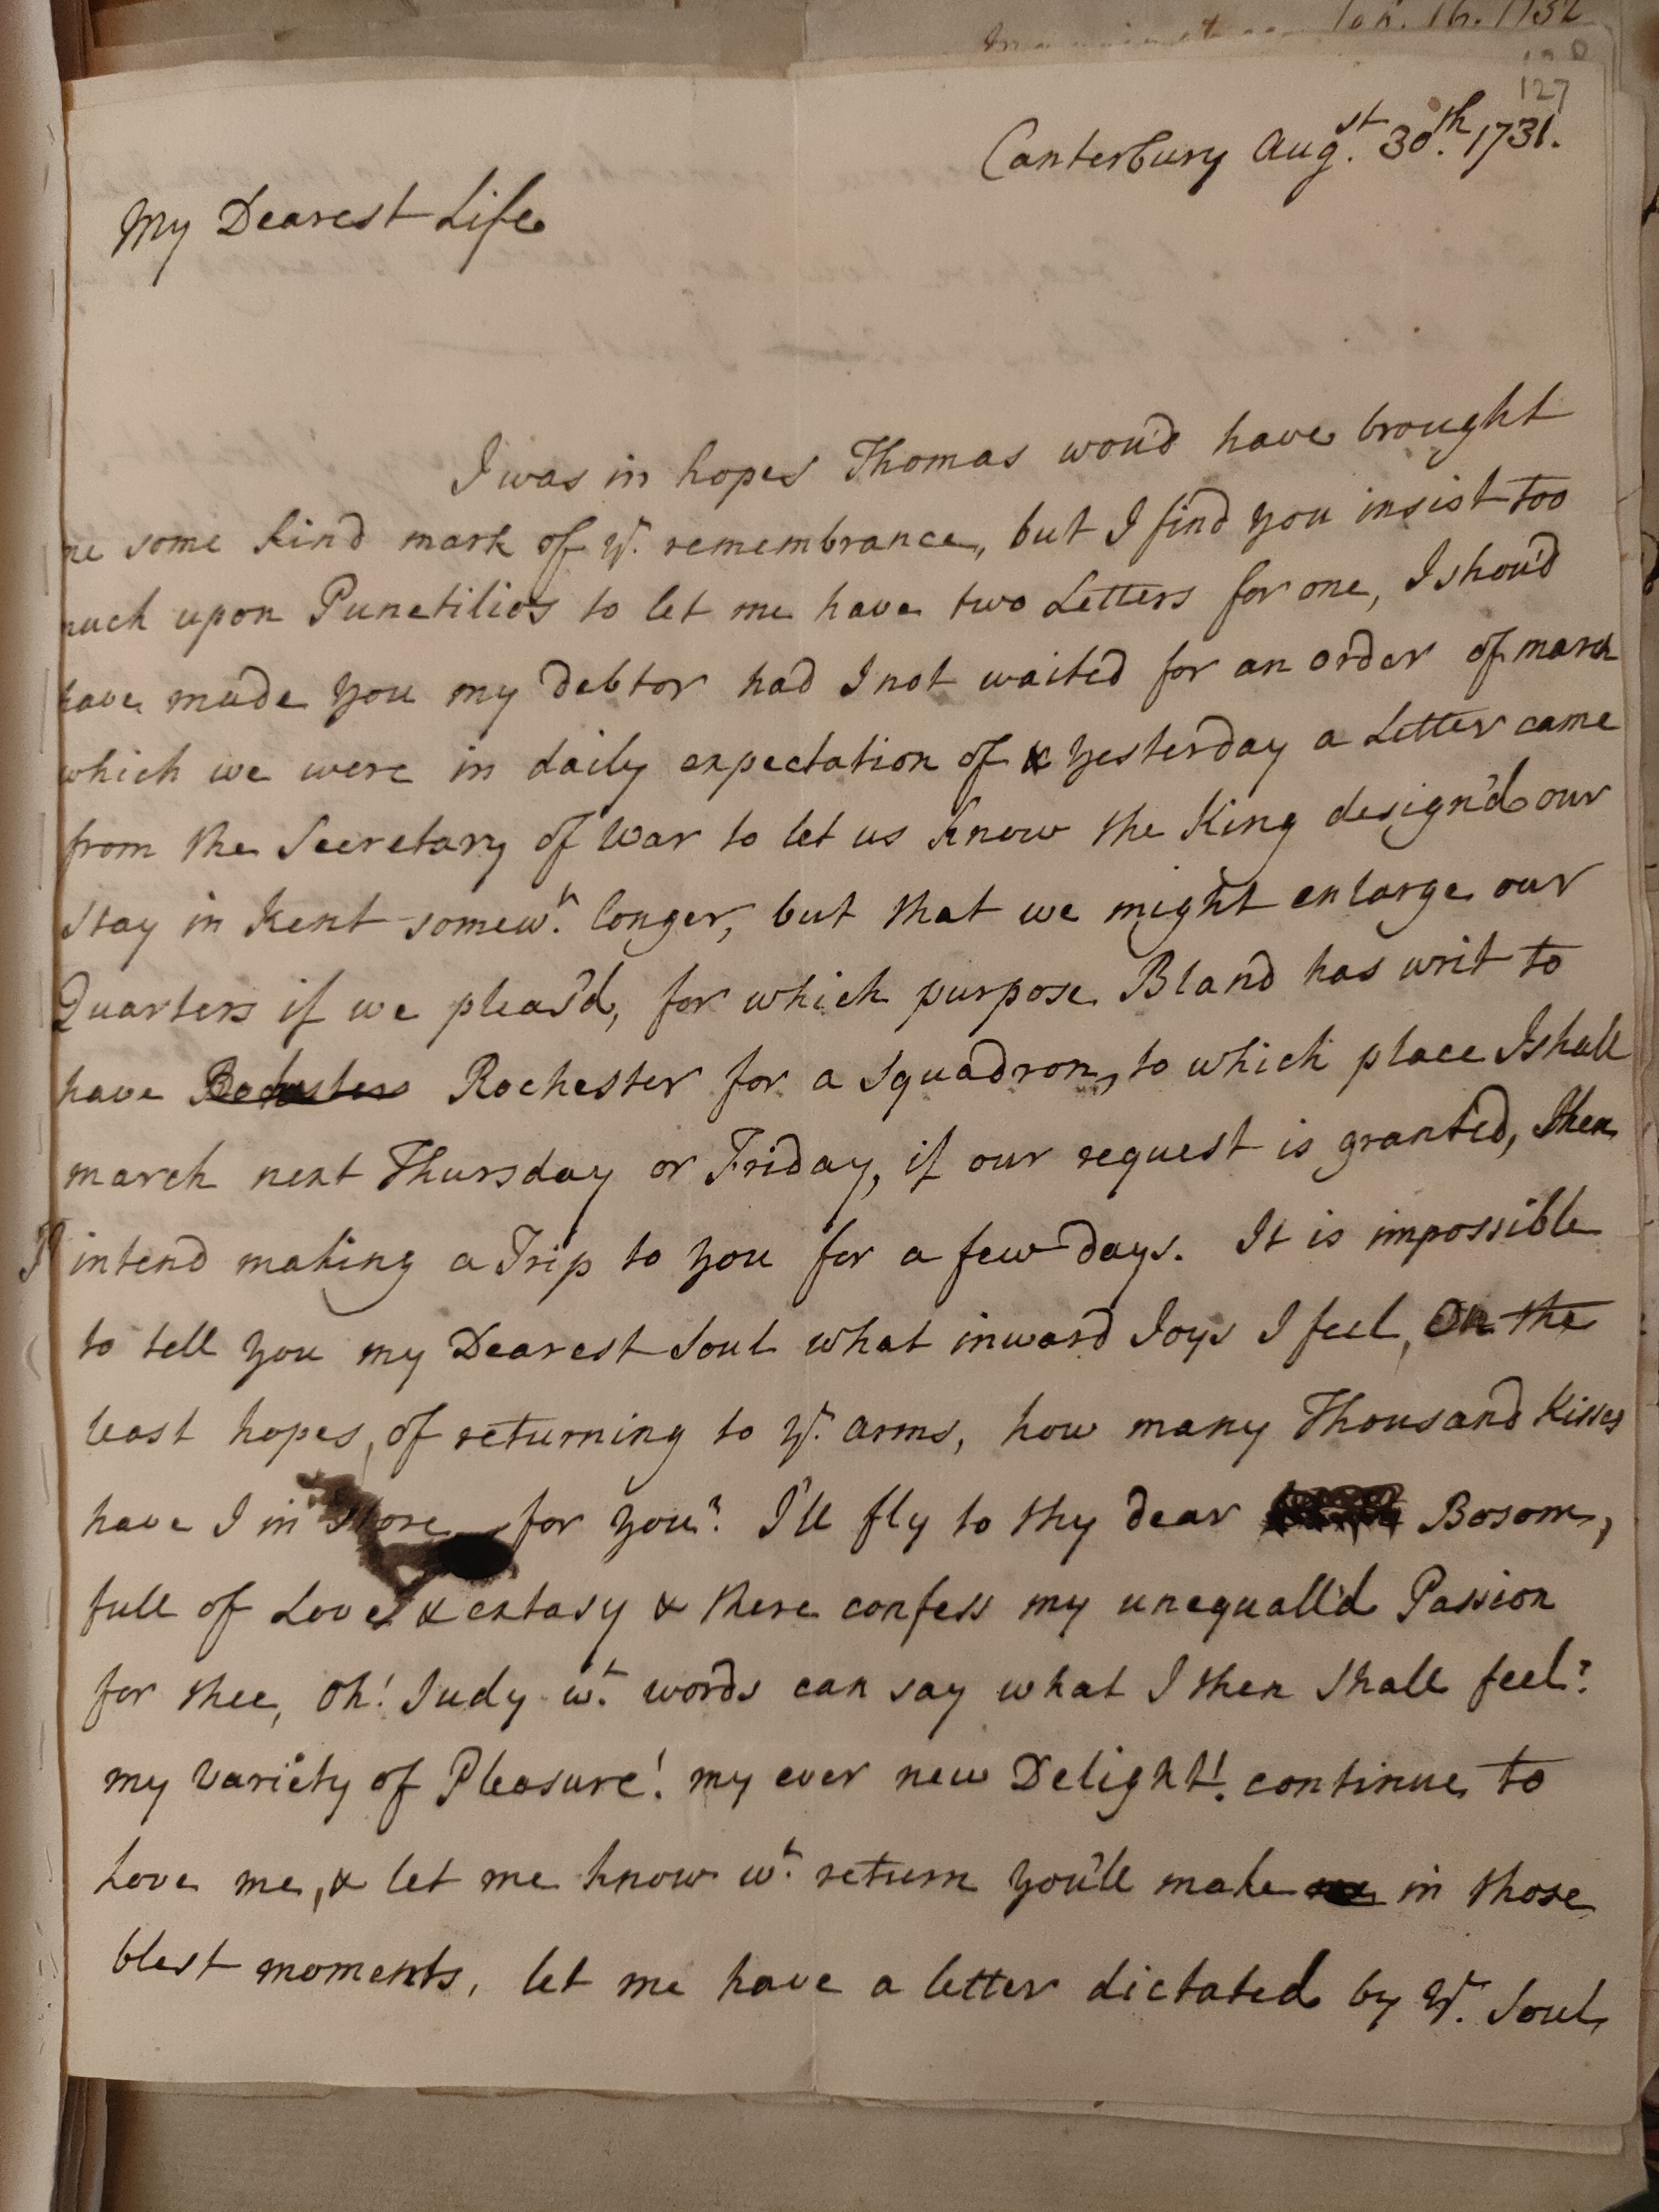 Jan. 16. 1732
127
Canterbury Aug.st 30.th 1731.
My Dearest Life
I was in hopes Thomas wou'd have brought
me some kind mark of yr. remembrance, but I find you insist too
much upon Punctilios to let me have two Letters for one, I shou'd
have made you my debtor had I not waited for an order of march
which we were in daily expectation of & yesterday a Letter came
from the Secretary of War to let us know the King design'd our
stay in Kent somew.t longer, but that we might enlarge our
Quarters if we pleas'd, for which purpose Bland has writ to
have Rochester for a squadron, to which place I shall
march next Thursday or Friday, if our request is granted, then
I intend making a Trip to you for a few days. It is impossible
to tell you my Dearest Soul what inward Joys I feel, On the
least hopes, of returning to yr. arms, how many Thousand Kisses
have I in Store for you? I'll fly to thy dear Bosom,
full of Love & extasy & there confess my unequall'd Passion
for thee, Oh! Judy w.t words can say what I then shall feel?
my variety of Pleasure! my ever new Delight! continue to
Love me, & let me know w.t return you'll make in those
blest moments, let me have a letter dictated by yr. Soul,